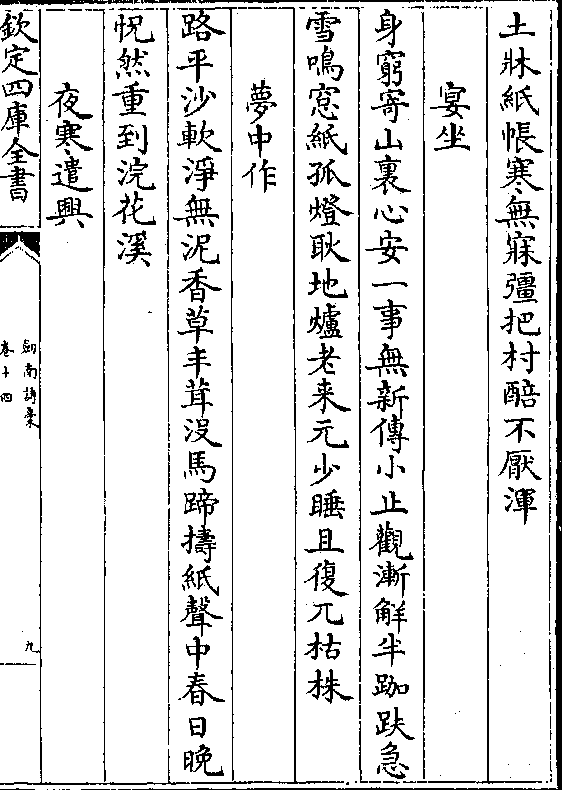 土牀紙帳寒無寐彊把村醅不厭渾
宴坐
身窮寄山裏心安一事無新傳小止觀漸解半跏趺急
雪鳴窓紙孤燈耿地爐老来元少睡且復兀枯株
夢中作
路平沙軟淨無泥香草丰茸没馬蹄擣紙聲中春日晩
怳然重到浣花溪
夜寒遣興
欽定四庫全書
劍南詩稾
卷十四
九